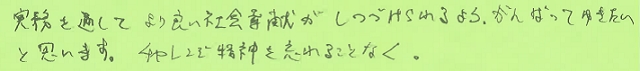 実務を通して より良い社会貢献が しつづけられるよう、がんばって ゆきたい
と思います。チャレンジ精神を忘れることなく。